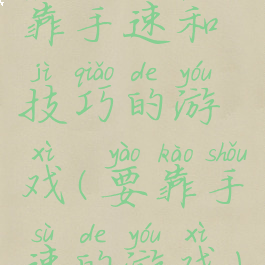 靠手速和
jì qiǎo de yóu
技巧的游
xì yào kào shǒu
戏(要靠手
sù de yóu xì
速的游戏)